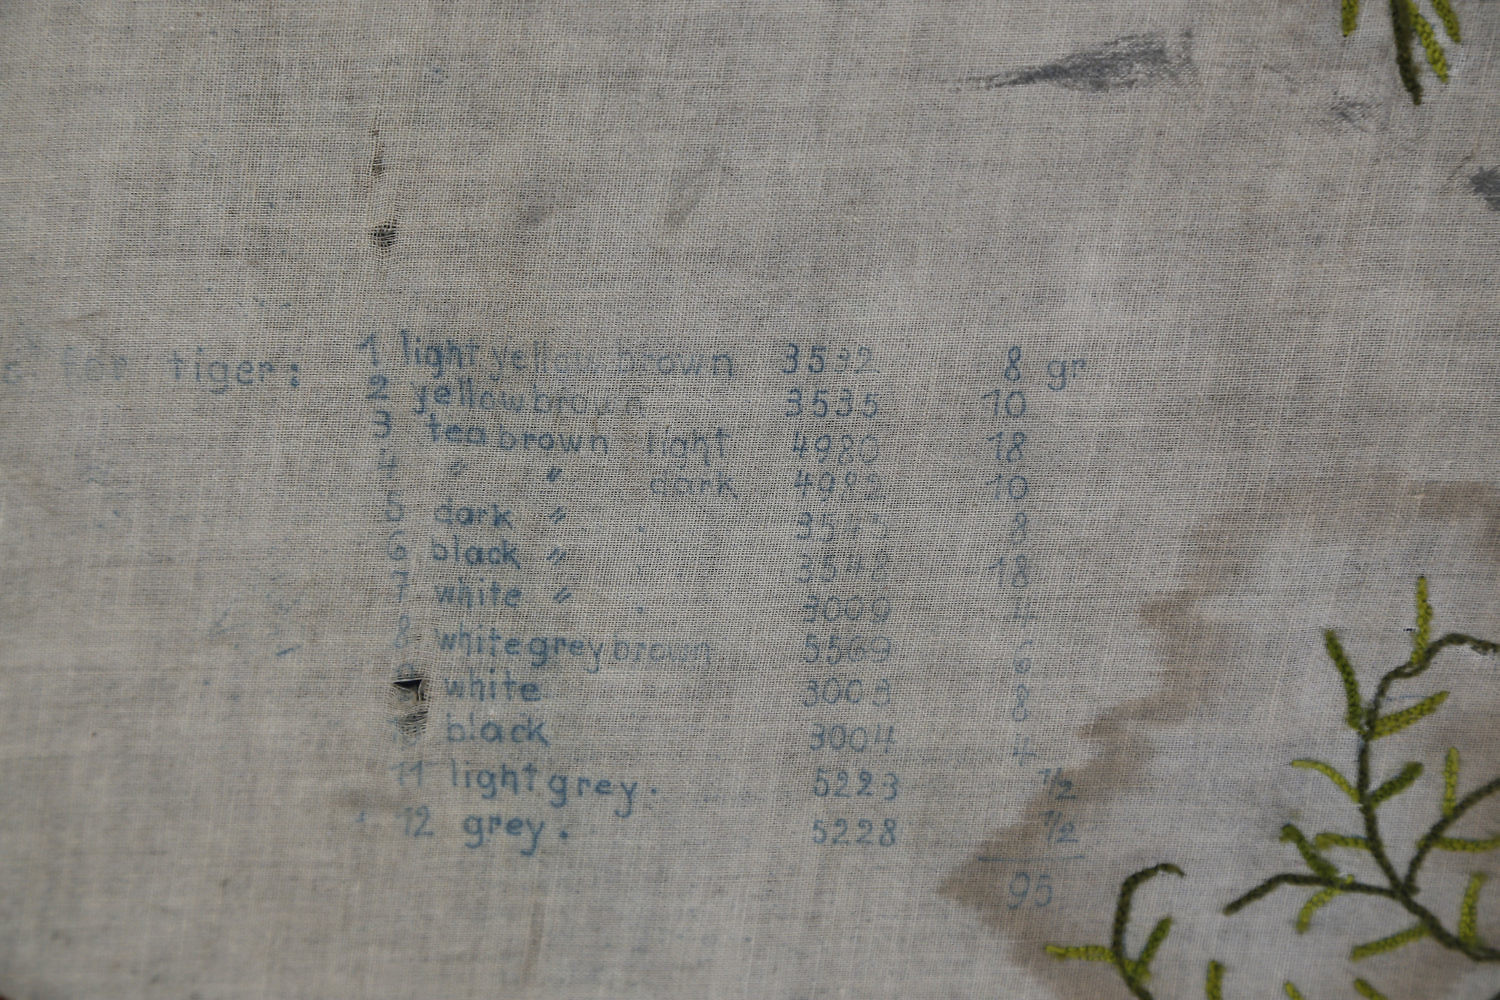 for tiger: 1 light yellow brown 3532 8 gr
2 yellow brown 3535 10
3 tea brown light 4980 18
4 " " dark 4982 10
5 dark " 8
6 black " 3548 18
7 white " 3009 4
8 white grey brown 5569 6
9 white 3003 8
10 black 3004 4
11 light grey. 5223 1/2
12 grey. 5228 1/2
95